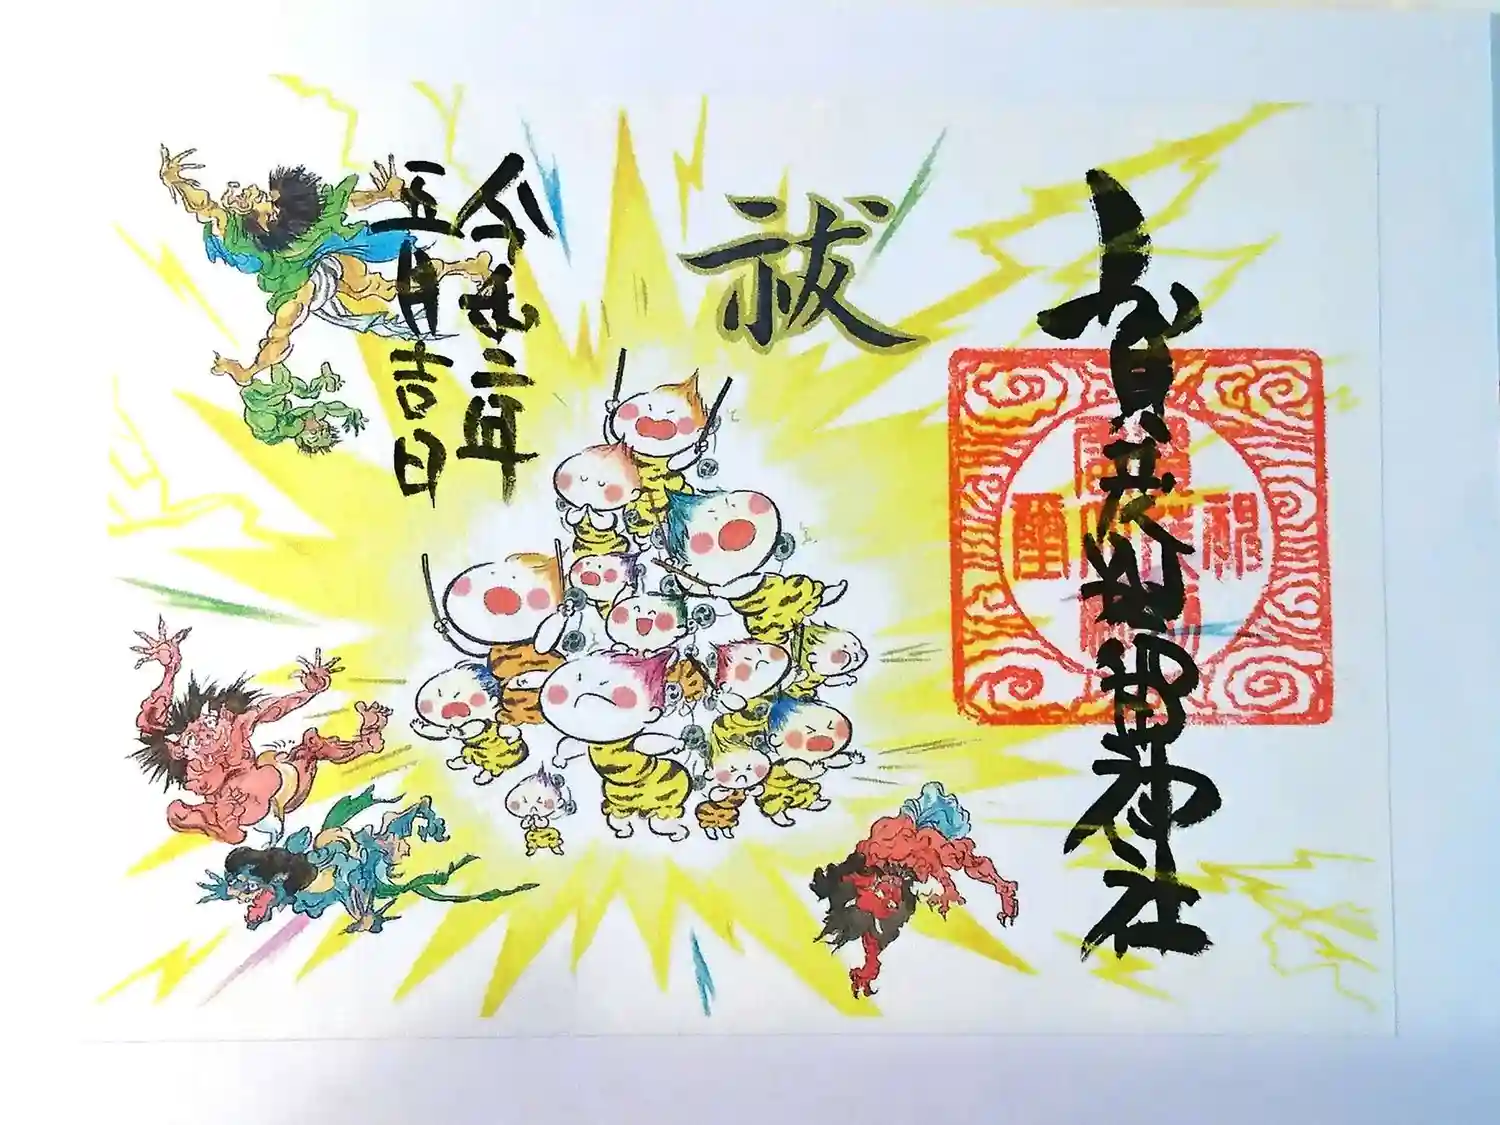 賀茂別雷神社
祓
令和二年
五月吉日